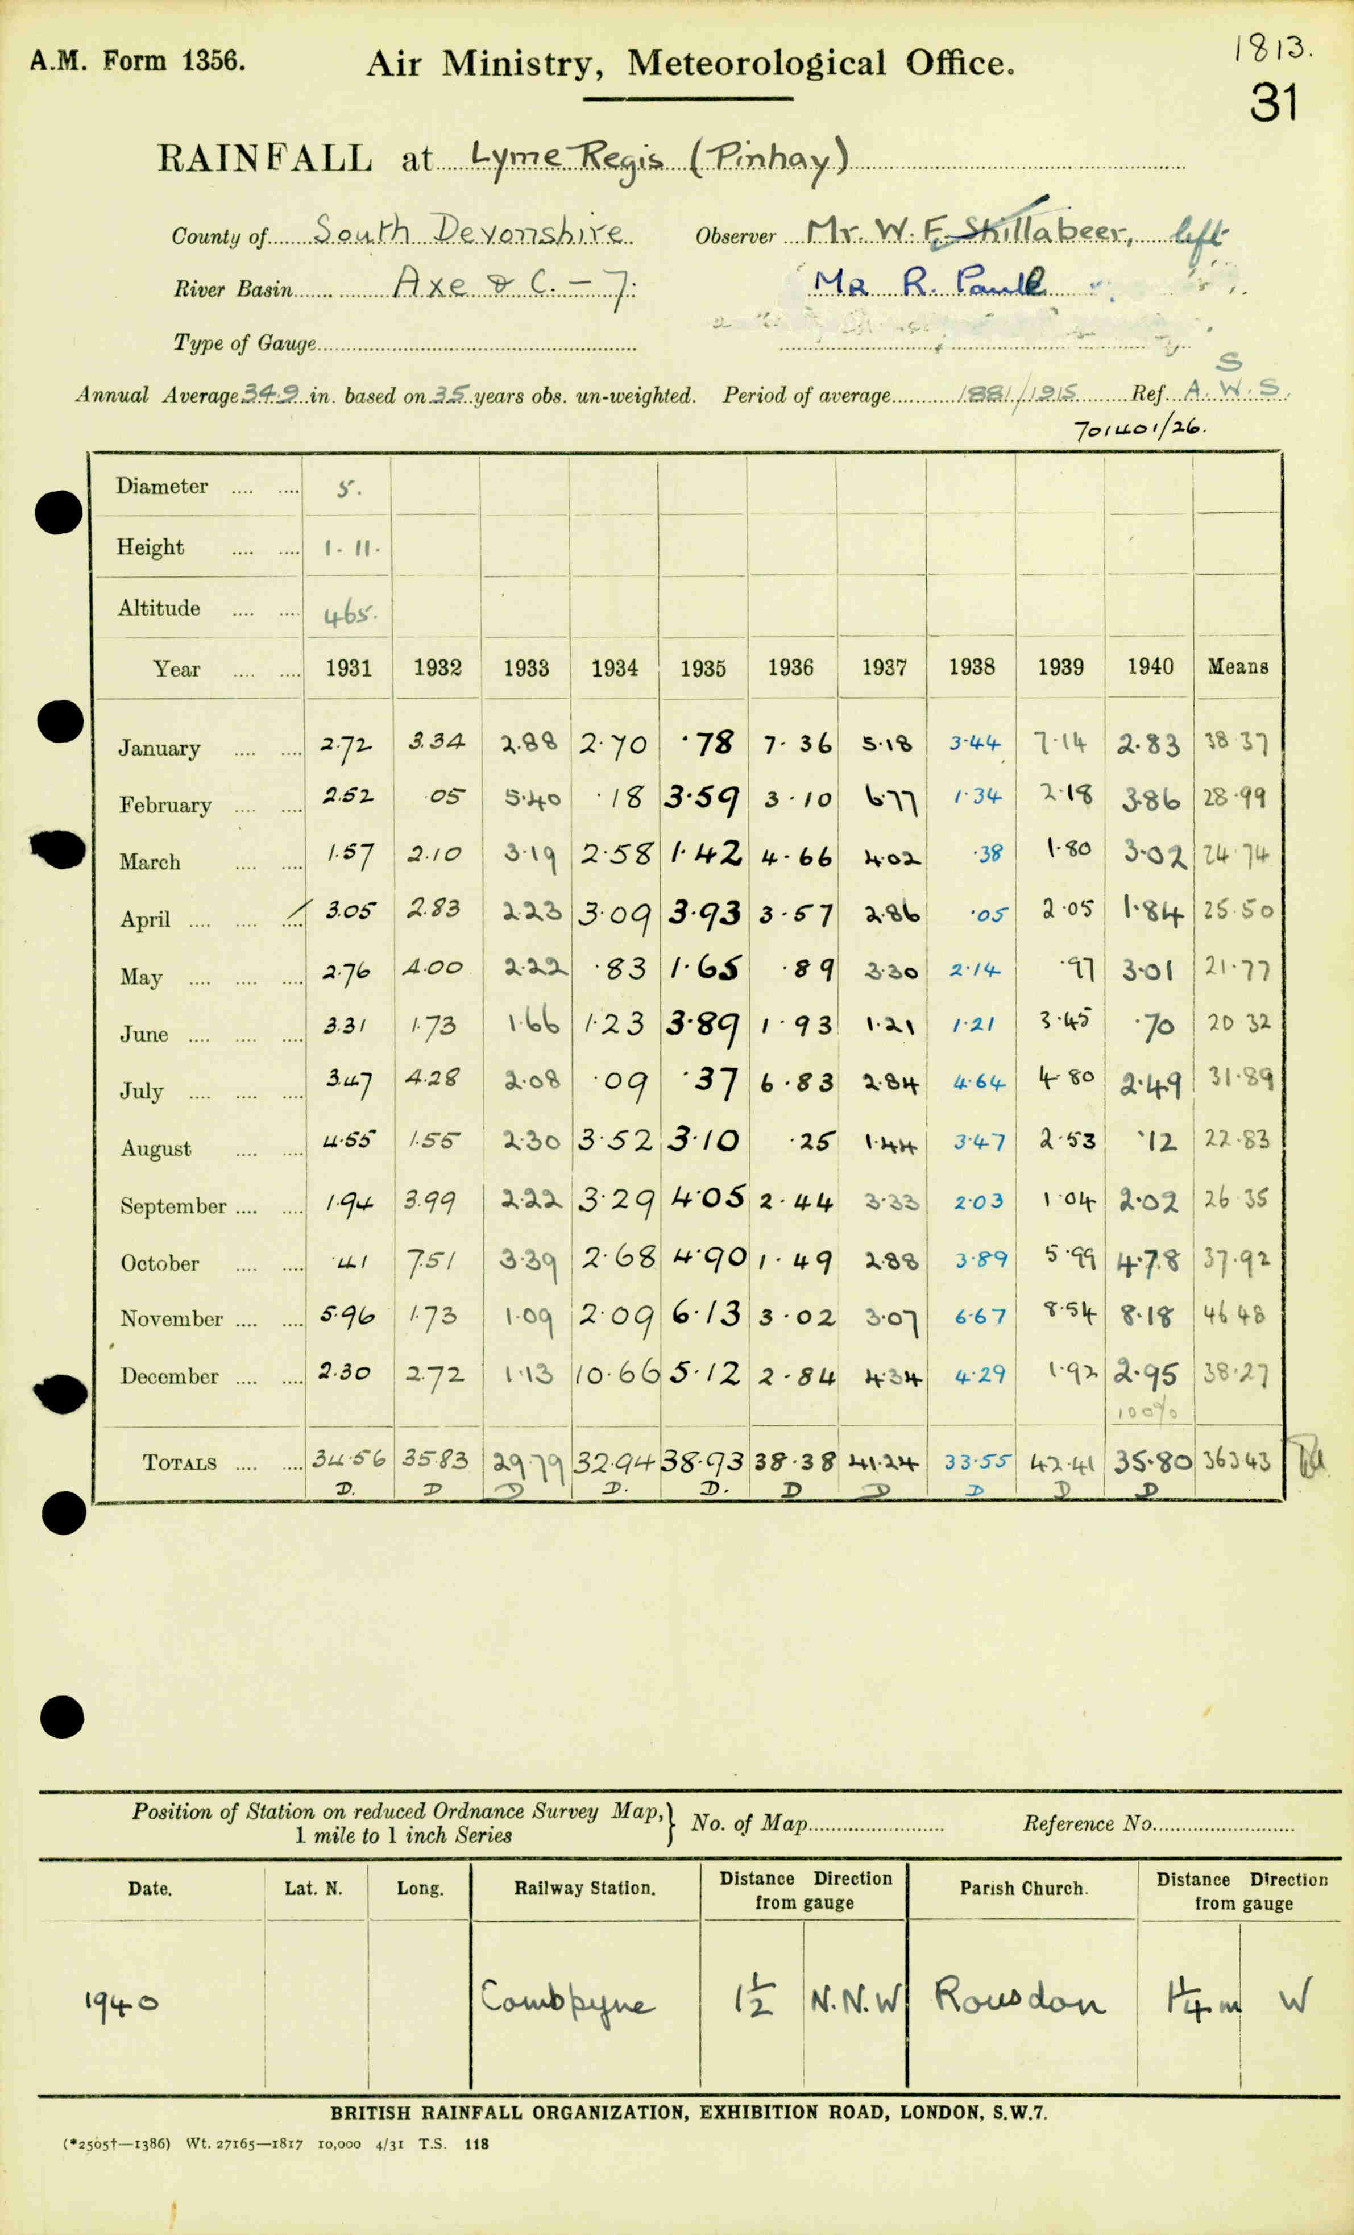 A.M. Form 1356. Air Ministry, Meteorological Office. 1813.
31
RAINFALL at Lyme Regis (Pinhay)
County of South Devonshire Observer Mr. W. F. Skillabeer, left
River Basin Axe & C. - 7. Mr R. Paull
Type of Gauge
S
Annual Average 34.9 in. based on 35 years obs. un-weighted. Period of average 1881/1915 Ref. A.W.S.
701401/26.
Diameter .... .... 5.
Height .... .... 1. 11.
Altitude .... .... 465.
Year .... .... 1931 1932 1933 1934 1935 1936 1937 1938 1939 1940 Means
January .... .... 2.72 3.34 2.88 2.70 .78 7.36 5.18 3.44 7.14 2.83 38.37
February .... .... 2.52 .05 5.40 .18 3.59 3.10 6.77 1.34 2.18 3.86 28.99
March .... .... 1.57 2.10 3.19 2.58 1.42 4.66 4.02 .38 1.80 3.02 24.74
April .... .... .... 3.05 2.83 2.23 3.09 3.93 3.57 2.86 .05 2.05 1.84 25.50
May .... .... .... 2.76 4.00 2.22 .83 1.65 .89 3.30 2.14 .97 3.01 21.77
June .... .... .... 3.31 1.73 1.66 1.23 3.89 1.93 1.21 1.21 3.45 .70 20 32
July .... .... .... 3.47 4.28 2.08 .09 .37 6.83 2.84 4.64 4.80 2.49 31.89
August .... .... 4.55 1.55 2.30 3.52 3.10 .25 1.44 3.47 2.53 .12 22.83
September .... .... 1.94 3.99 2.22 3.29 4.05 2.44 3.33 2.03 1.04 2.02 26 35
October .... .... .41 7.51 3.39 2.68 4.90 1.49 2.88 3.89 5.99 4.78 37.92
November .... .... 5.96 1.73 1.09 2.09 6.13 3.02 3.07 6.67 8.54 8.18 46 48
December .... .... 2.30 2.72 1.13 10.66 5.12 2.84 4.34 4.29 1.92 2.95 38.27
100%
TOTALS .... .... 34.56 35.83 29.79 32.94 38.93 38.38 41.24 33.55 42.41 35.80 363 43
D. D D D. D. D D D D D
Position of Station on reduced Ordnance Survey Map, } No. of Map Reference No.
1 mile to 1 inch Series
Date. Lat. N. Long. Railway Station. Distance Direction from gauge Parish Church. Distance Direction from gauge
1940 Combpyne 1½ N.N.W Rousdon 1¼ m W
BRITISH RAINFALL ORGANIZATION, EXHIBITION ROAD, LONDON, S.W.7.
(*2505†—1386) Wt. 27165—1817 10,000 4/31 T.S. 118